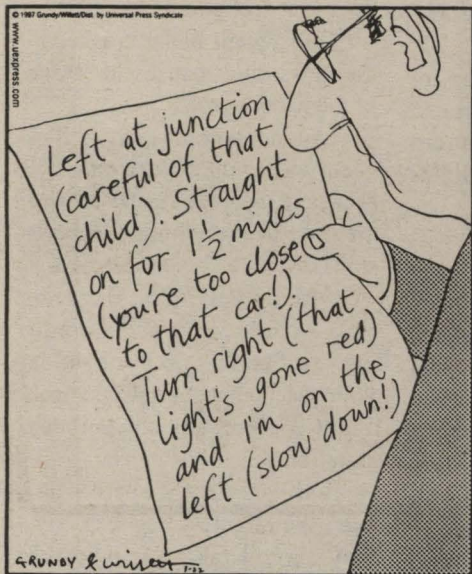 © 1997 Grundy/Willett/Dist. by Universal Press Syndicate
www.uexpress.com
Left at junction
(careful of that
child). Straight
on for 1 1/2 miles
(you're too close
to that car!).
Turn right (that
light's gone red)
and I'm on the
left (slow down!)
GRUNDY & Willett
1-22